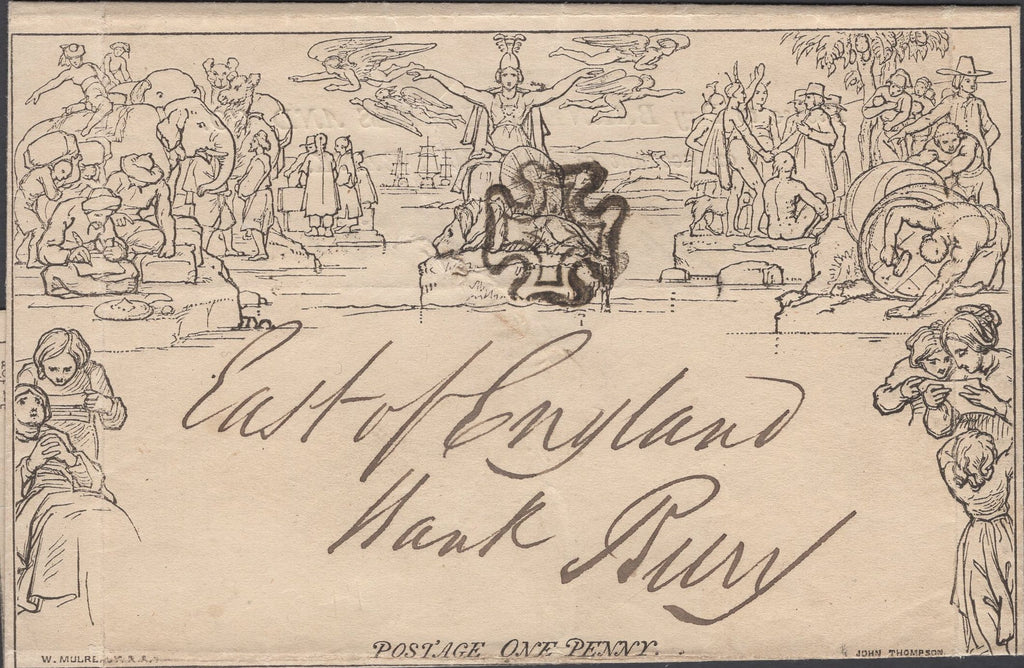 East of England
Bank Bury
POSTAGE ONE PENNY.
W. MULREADY. R. A.
JOHN THOMPSON.